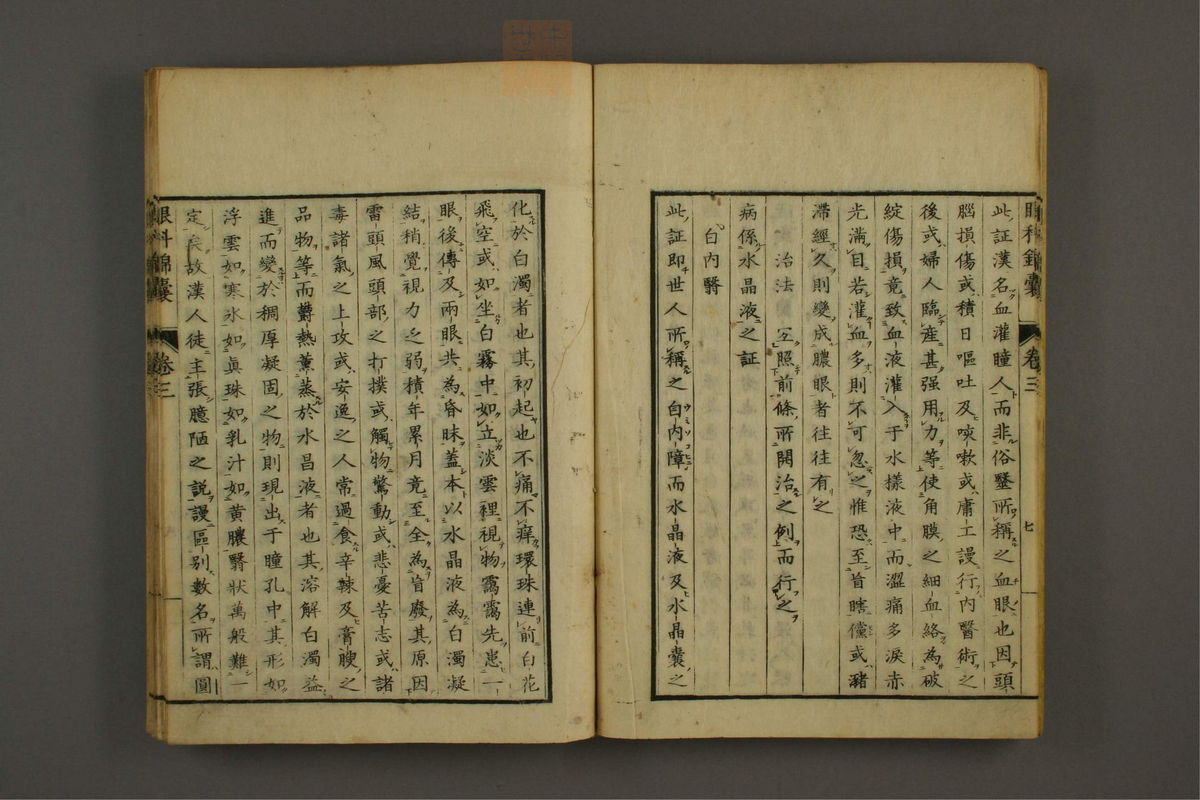 眼科錦囊 卷三 七
此証漢名血灌瞳人而非俗醫所稱之血眼也因頭
腦損傷或積日嘔吐及咳嗽或庸工謾行內翳術之
後或婦人臨產甚强用力等使角膜之細血絡為破
綻傷損竟致血液灌入于水樣液中而澀痛多淚赤
光滿目若灌血多則不可忽之惟恐至盲瞎儻或瀦
滯經久則變成膿眼者往往有之
治法 互照前條所開治之例而行之
病係水晶液之証
白內翳
此証即世人所稱之白內障而水晶液及水晶囊之
化於白濁者也其初起也不痛不痒環珠連前白花
飛空或如坐白霧中如立淡雲裡視物靄靄先患一
眼後傳及兩眼共為昏昧蓋本以水晶液為白濁凝
結稍覺視力乏弱積年累月竟至全為盲廢其原因
雷頭風頭部之打撲或觸物驚動或悲憂苦志或諸
毒諸氣之上攻或安逸之人常過食辛辣及膏腴之
品物等而欝熱薰蒸於水昌液者也其溶解白濁益
進而變於稠厚凝固之物則現出于瞳孔中其形如
浮雲如寒氷如眞珠如乳汁如黃膿翳狀萬般難一
定矣故漢人徒主張臆陋之説謾區別數名所謂圓
眼科錦囊 卷三